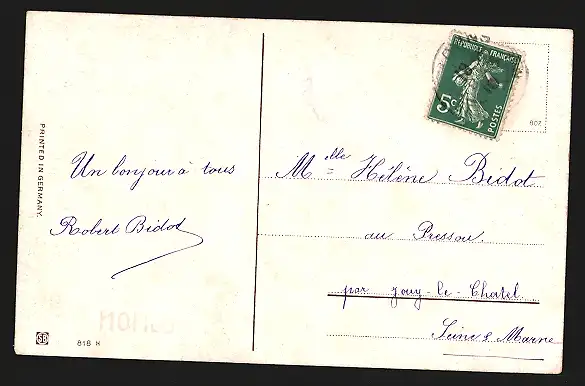 REPUBLIQUE FRANÇAISE
5c
POSTES
808
PRINTED IN GERMANY.
Un bonjour à tous
Robert Bidot
Melle Hélène Bidot
au Pressou.
par Jouy-le-Chatel
Seine & Marne
SB
818 K